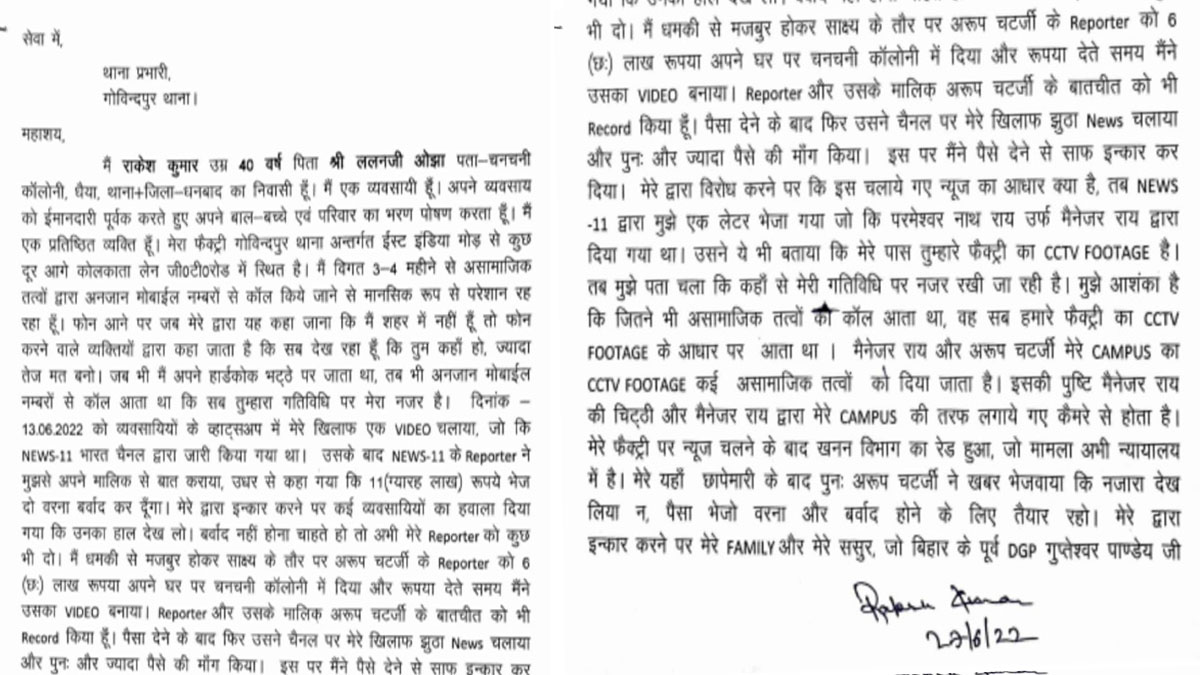 सेवा में,
थाना प्रभारी,
गोविन्दपुर थाना।
महाशय,
मैं राकेश कुमार उम्र 40 वर्ष पिता श्री ललनजी ओझा पता–चनचनी
कॉलोनी, धैया, थाना+जिला–धनबाद का निवासी हूँ। मैं एक व्यवसायी हूँ। अपने व्यवसाय
को ईमानदारी पूर्वक करते हुए अपने बाल–बच्चे एवं परिवार का भरण पोषण करता हूँ। मैं
एक प्रतिष्ठित व्यक्ति हूँ। मेरा फैक्ट्री गोविन्दपुर थाना अन्तर्गत ईस्ट इंडिया मोड़ से कुछ
दूर आगे कोलकाता लेन जी0टी0रोड में स्थित है। मैं विगत 3–4 महीने से असामाजिक
तत्वों द्वारा अनजान मोबाईल नम्बरों से कॉल किये जाने से मानसिक रूप से परेशान रह
रहा हूँ। फोन आने पर जब मेरे द्वारा यह कहा जाना कि मैं शहर में नहीं हूँ तो फोन
करने वाले व्यक्तियों द्वारा कहा जाता है कि सब देख रहा हूँ कि तुम कहाँ हो, ज्यादा
तेज मत बनो। जब भी मैं अपने हार्डकोक भट्ठे पर जाता था, तब भी अनजान मोबाईल
नम्बरों से कॉल आता था कि सब तुम्हारा गतिविधि पर मेरा नजर है। दिनांक –
13.06.2022 को व्यवसायियों के व्हाट्सअप में मेरे खिलाफ एक VIDEO चलाया, जो कि
NEWS-11 भारत चैनल द्वारा जारी किया गया था। उसके बाद NEWS-11 के Reporter ने
मुझसे अपने मालिक से बात कराया, उधर से कहा गया कि 11(ग्यारह लाख) रूपये भेज
दो वरना बर्वाद कर दूँगा। मेरे द्वारा इन्कार करने पर कई व्यवसायियों का हवाला दिया
गया कि उनका हाल देख लो। बर्वाद नहीं होना चाहते हो तो अभी मेरे Reporter को कुछ
भी दो। मैं धमकी से मजबुर होकर साक्ष्य के तौर पर अरूप चटर्जी के Reporter को 6
(छः) लाख रूपया अपने घर पर चनचनी कॉलोनी में दिया और रूपया देते समय मैंने
उसका VIDEO बनाया। Reporter और उसके मालिक् अरूप चटर्जी के बातचीत को भी
Record किया हूँ। पैसा देने के बाद फिर उसने चैनल पर मेरे खिलाफ झुठा News चलाया
और पुनः और ज्यादा पैसे की माँग किया। इस पर मैंने पैसे देने से साफ इन्कार कर
भी दो। मैं धमकी से मजबुर होकर साक्ष्य के तौर पर अरूप चटर्जी के Reporter को 6
(छः) लाख रूपया अपने घर पर चनचनी कॉलोनी में दिया और रूपया देते समय मैंने
उसका VIDEO बनाया। Reporter और उसके मालिक् अरूप चटर्जी के बातचीत को भी
Record किया हूँ। पैसा देने के बाद फिर उसने चैनल पर मेरे खिलाफ झुठा News चलाया
और पुनः और ज्यादा पैसे की माँग किया। इस पर मैंने पैसे देने से साफ इन्कार कर
दिया। मेरे द्वारा विरोध करने पर कि इस चलाये गए न्यूज का आधार क्या है, तब NEWS
-11 द्वारा मुझे एक लेटर भेजा गया जो कि परमेश्वर नाथ राय उर्फ मैनेजर राय द्वारा
दिया गया था। उसने ये भी बताया कि मेरे पास तुम्हारे फैक्ट्री का CCTV FOOTAGE है।
तब मुझे पता चला कि कहाँ से मेरी गतिविधि पर नजर रखी जा रही है। मुझे आशंका है
कि जितने भी असामाजिक तत्वों का कॉल आता था, वह सब हमारे फैक्ट्री का CCTV
FOOTAGE के आधार पर आता था । मैनेजर राय और अरूप चटर्जी मेरे CAMPUS का
CCTV FOOTAGE कई असामाजिक तत्वों को दिया जाता है। इसकी पुष्टि मैनेजर राय
की चिट्ठी और मैनेजर राय द्वारा मेरे CAMPUS की तरफ लगाये गए कैमरे से होता है।
मेरे फैक्ट्री पर न्यूज चलने के बाद खनन विभाग का रेड हुआ, जो मामला अभी न्यायालय
में है। मेरे यहाँ छापेमारी के बाद पुनः अरूप चटर्जी ने खबर भेजवाया कि नजारा देख
लिया न, पैसा भेजो वरना और बर्वाद होने के लिए तैयार रहो। मेरे द्वारा
इन्कार करने पर मेरे FAMILY और मेरे ससुर, जो बिहार के पूर्व DGP गुप्तेश्वर पाण्डेय जी
Rakesh Kumar
27/6/22